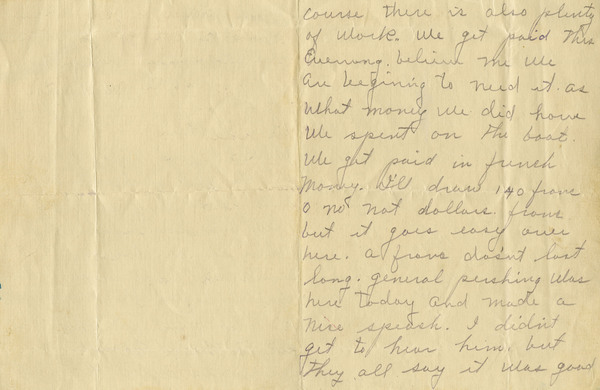 course there is also plenty
of work. We get paid this
Evening. believe me We
are begining to need it. as
what money we did have
We spent on the boat.
We get paid in french
Money. I'll draw 140 frans
O no not dollars. frans
but it goes easy over
here. a frans doesnt last
long. general pershing Was
here today and made a
Nice speash. I didn't
get to hear him, but
they all say it was good